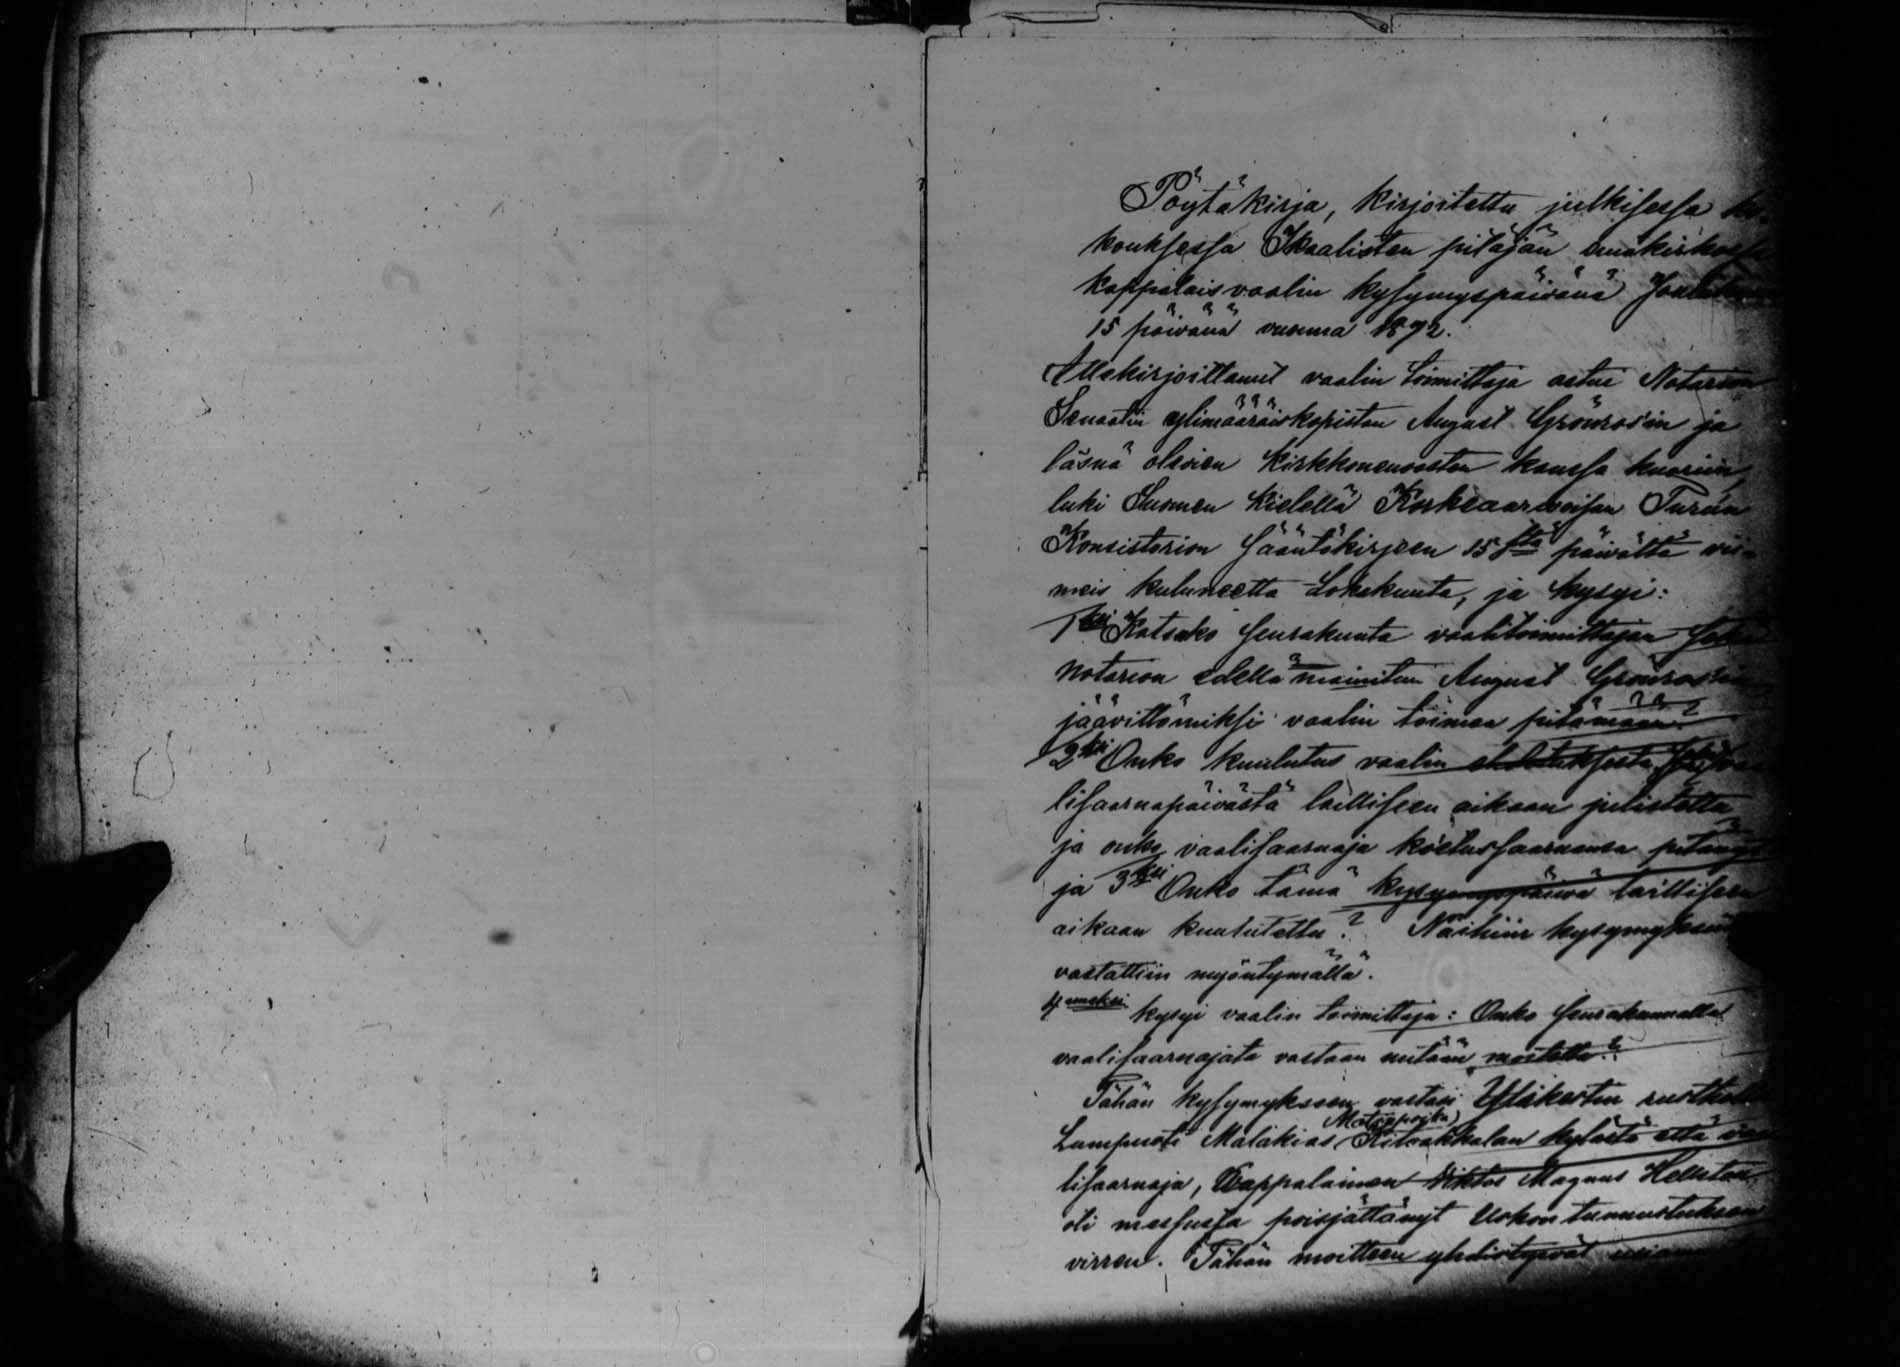 Pöytäkirja, kirjoitettu julkisessa ko-
kouksessa Ikaalisten pitäjän emäkirkossa
kappalaisvaalin kysymyspäivänä
15 päivänä vuonna 1892.
Allekirjoittanut vaalin toimittaja astui Notarion
Senaatin ylimääräiskopistan August Grönrosin ja
läsnä olevien Kirkkoneuvosten kanssa kuoriin,
luki Suomen Kielellä Korkeaarvoisan Turun
Konsistorion Sääntökirjeen 15sta päivältä vii-
meis kuluneetta Lokakuuta, ja kysyi:
1ksi Katsoko Seurakunta vaalitoimittajan
notarion edellä mainitun August Grönrosin
jäävittömiksi vaalin toimea pitämään?
2ksi Onko kuulutus vaalin
lisaarnapäivästä lailliseen aikaan julistettu
ja onko vaalisaarnaja köetussaarnansa pitänyt
ja 3ksi Onko tämä kysymyspäivä lailliseen
aikaan kuulutettu? Näihin kysymyksiin
vastattiin myöntymällä.
4neksi kysyi vaalin toimittaja: Onko Seurakunnalla
vaalisaarnajata vastaan mitään moitetta?
Tähän kysymykseen vastasi Yläkartun
Malakias Matinpoika Kilvakkalan kylästä että vaa
lisaarnaja, Kappalainen Viktor Magnus
oli messusta poisjättänyt Uskon tunnustuksen
virren. Tähän moitteen yhdistyivät